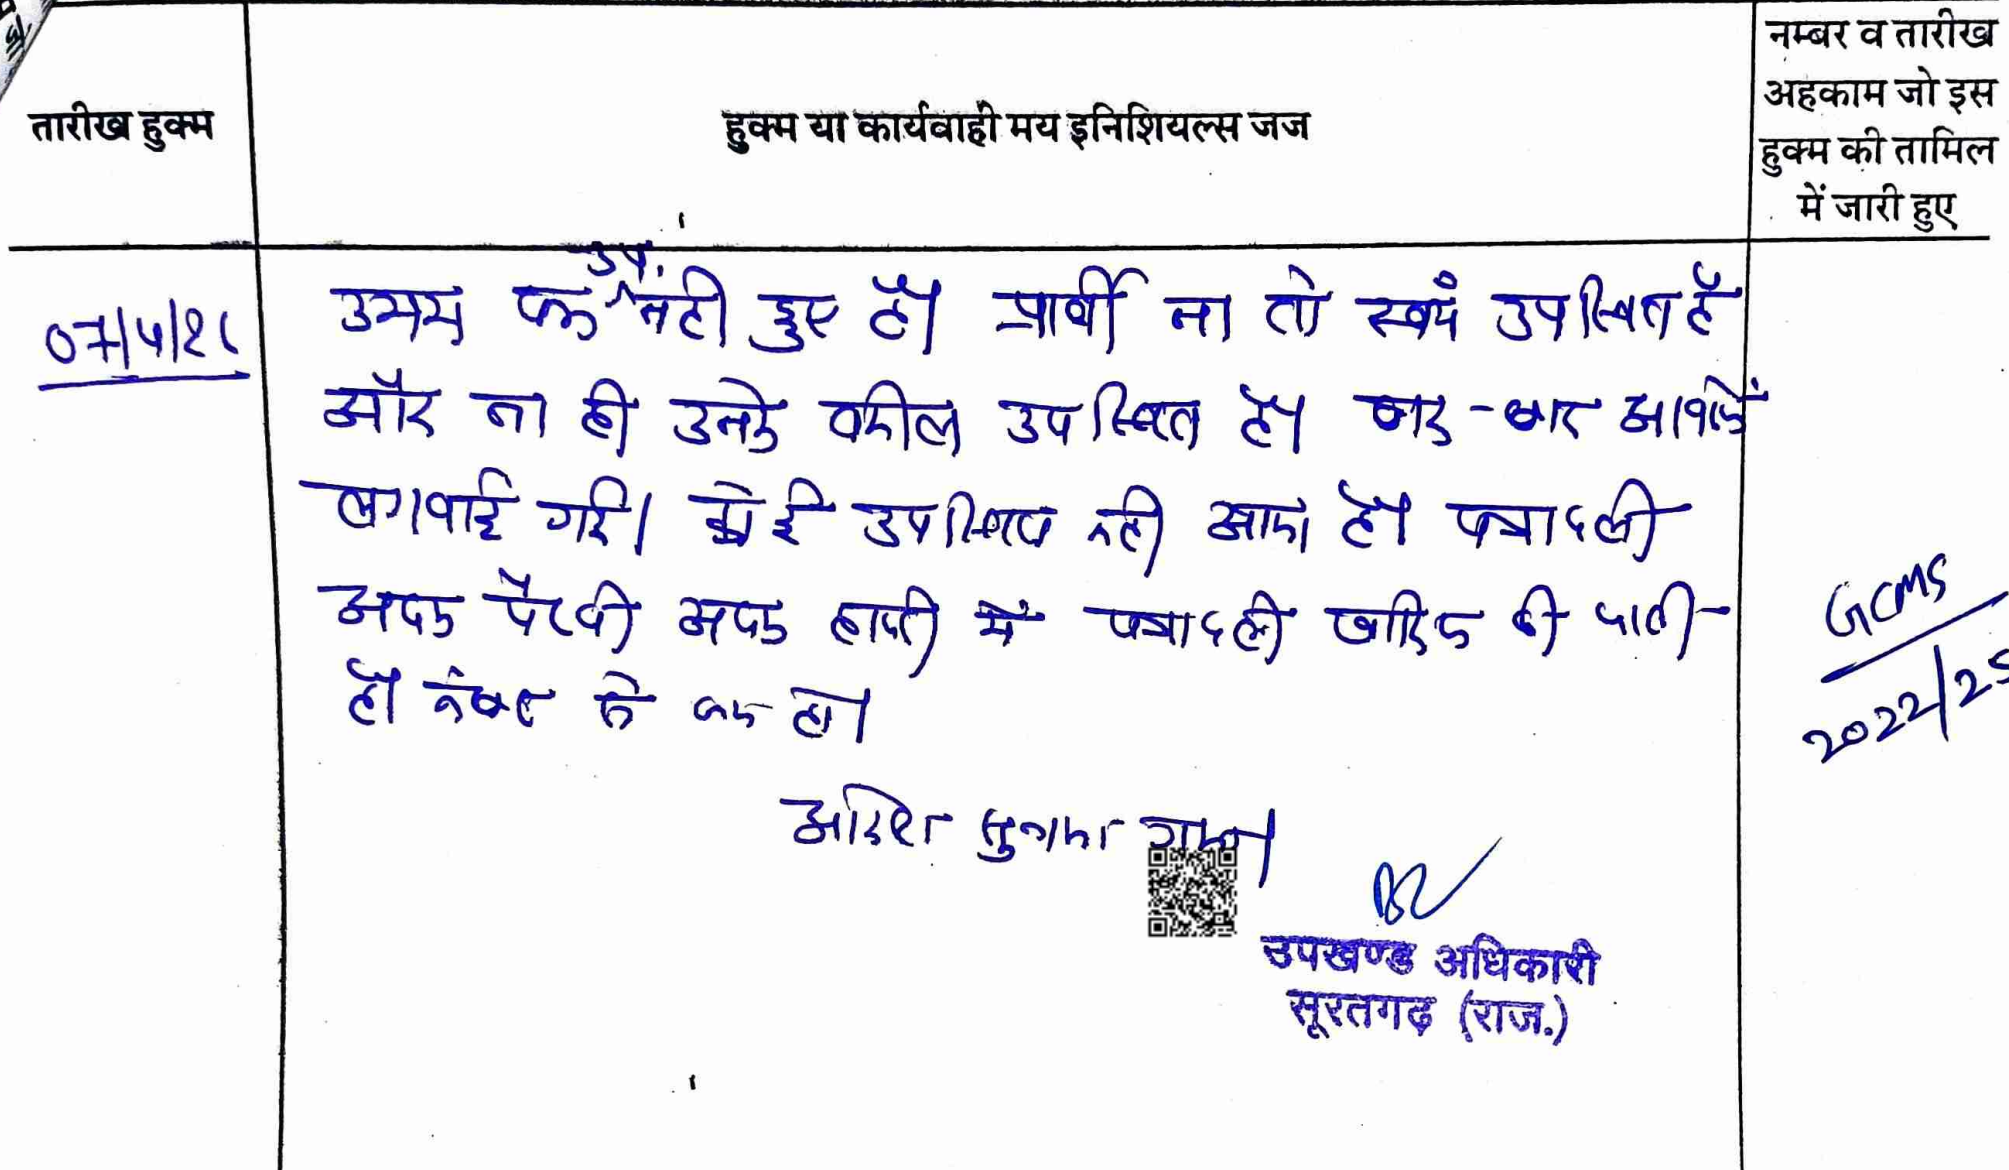 तारीख हुक्म
हुक्म या कार्यवाही मय इनिशियल्स जज
नम्बर व तारीख
अहकाम जो इस
हुक्म की तामिल
में जारी हुए
उप.
उभय पक्ष नही हुए है। प्रार्थी ना तो स्वयं उपस्थित है
और ना ही उनके वकील उपस्थित है। बार-बार आवाजें
लगवाई गई। कोई उपस्थित नही आया है। पत्रावली
अदम पैरवी अदम हाजरी में पत्रावली खारिज की जाती
है। नंबर से कम हो।
आदेश सुनाया गया।
GCMS
2022/25
उपखण्ड अधिकारी
सूरतगढ़ (राज.)